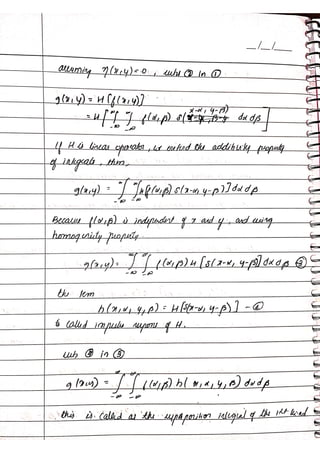 __/__/__
assuming η(x,y)=0 , subs ② in ①
g(x,y) = H [f(x,y)]
= H [ ∫∫ f(α,β) δ(x-α, y-β) dα dβ ]
If H is linear operator, we extend the additivity property
of integrals, then,
g(x,y) = ∫∫ H[f(α,β) δ(x-α, y-β)] dα dβ
Because f(α,β) is independent of x and y, and using
homogenity property
g(x,y) = ∫∫ f(α,β) H [δ(x-α, y-β)] dα dβ
the term
h(x,α, y,β) = H[δ(x-α, y-β)] -④
is called impulse respons of H.
sub ④ in ③
g(x,y) = ∫∫ f(α,β) h( x, α, y, β) dα dβ
this is called as the superposition integral of the 1st kind